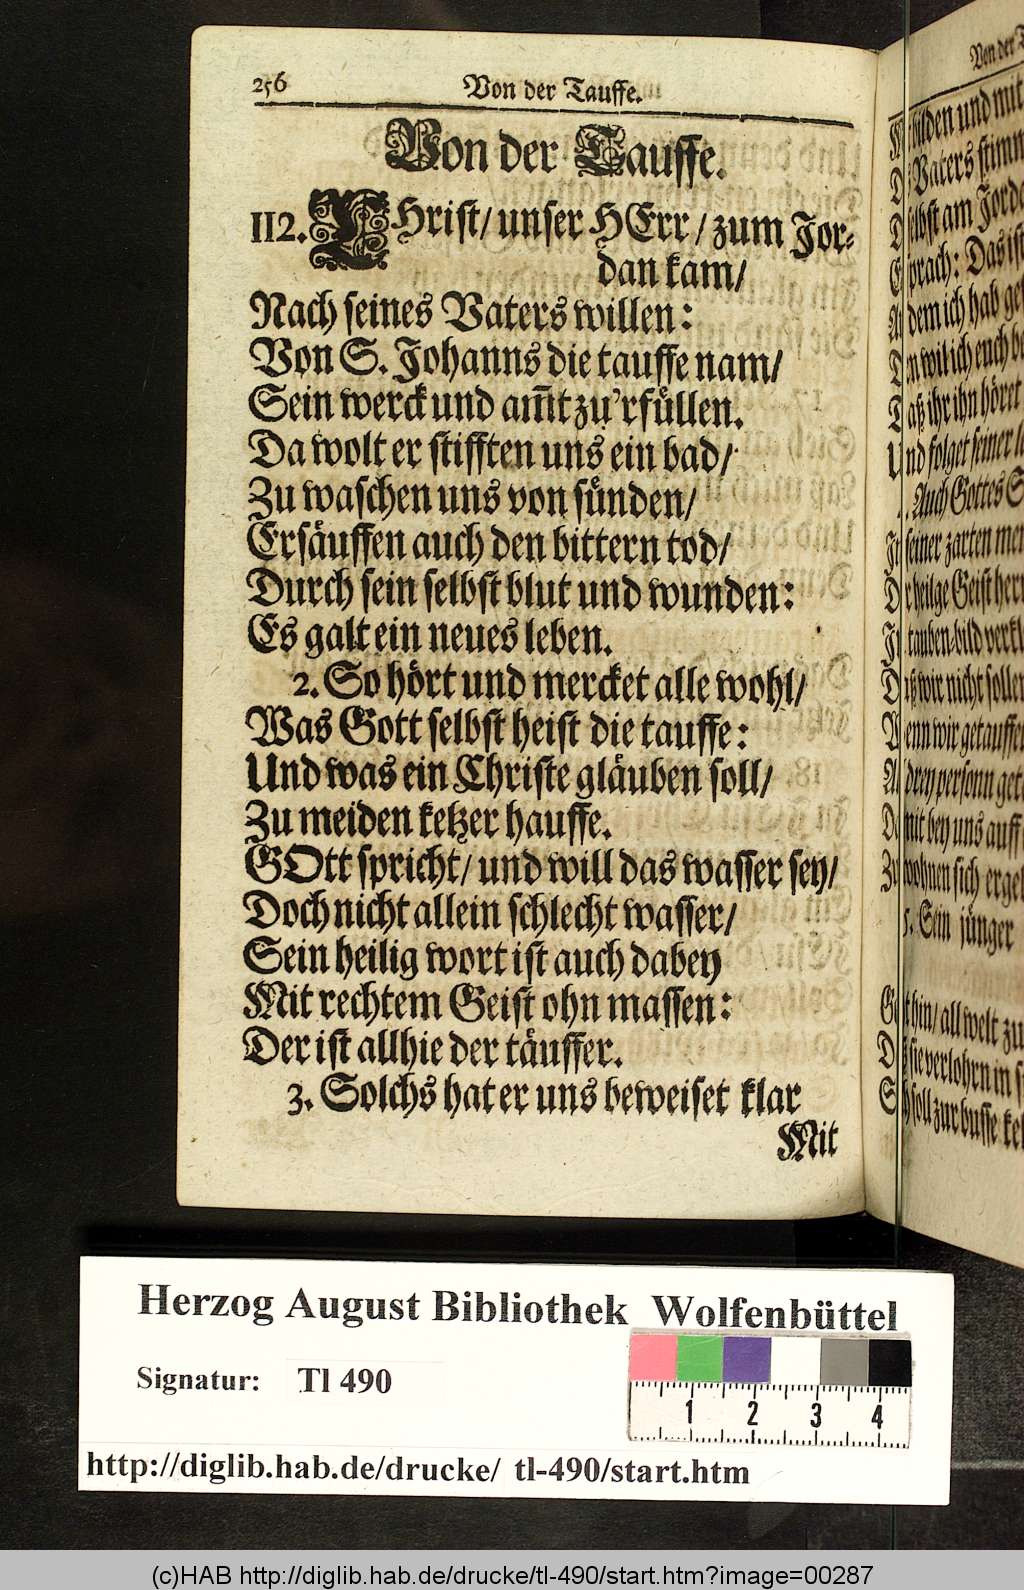 256
Von der Tauffe.
Von der Tauffe.
112. CHrist/ unser HErr/ zum Jor-
dan kam/
Nach seines Vaters willen:
Von S. Johanns die tauffe nam/
Sein werck und am̅t zu'rfüllen.
Da wolt er stifften uns ein bad/
Zu waschen uns von sünden/
Ersäuffen auch den bittern tod/
Durch sein selbst blut und wunden:
Es galt ein neues leben.
2. So hört und mercket alle wohl/
Was Gott selbst heist die tauffe:
Und was ein Christe gläuben soll/
Zu meiden ketzer hauffe.
GOtt spricht/ und will das wasser sey/
Doch nicht allein schlecht wasser/
Sein heilig wort ist auch dabey
Mit rechtem Geist ohn massen:
Der ist allhie der täuffer.
3. Solchs hat er uns beweiset klar
Mit
Von der
bilden und mit
Vaters stimm
selbst am Jorda
sprach: Das ist
dem ich hab gef
wil ich euch be
ihr ihn höret
Und folget seiner le
Auch Gottes S
seiner zarten men
heilge Geist hern
tauben-bild verkl
wir nicht sollen
wenn wir getauffet
drey personn geta
mit bey uns auff
wohnen sich ergeb
5. Sein jünger
hin/ all welt zu
sie verlohrn in s
soll zur busse keh
Herzog August Bibliothek Wolfenbüttel
Signatur: Tl 490
1 2 3 4
http://diglib.hab.de/drucke/ tl-490/start.htm
(c)HAB http://diglib.hab.de/drucke/tl-490/start.htm?image=00287